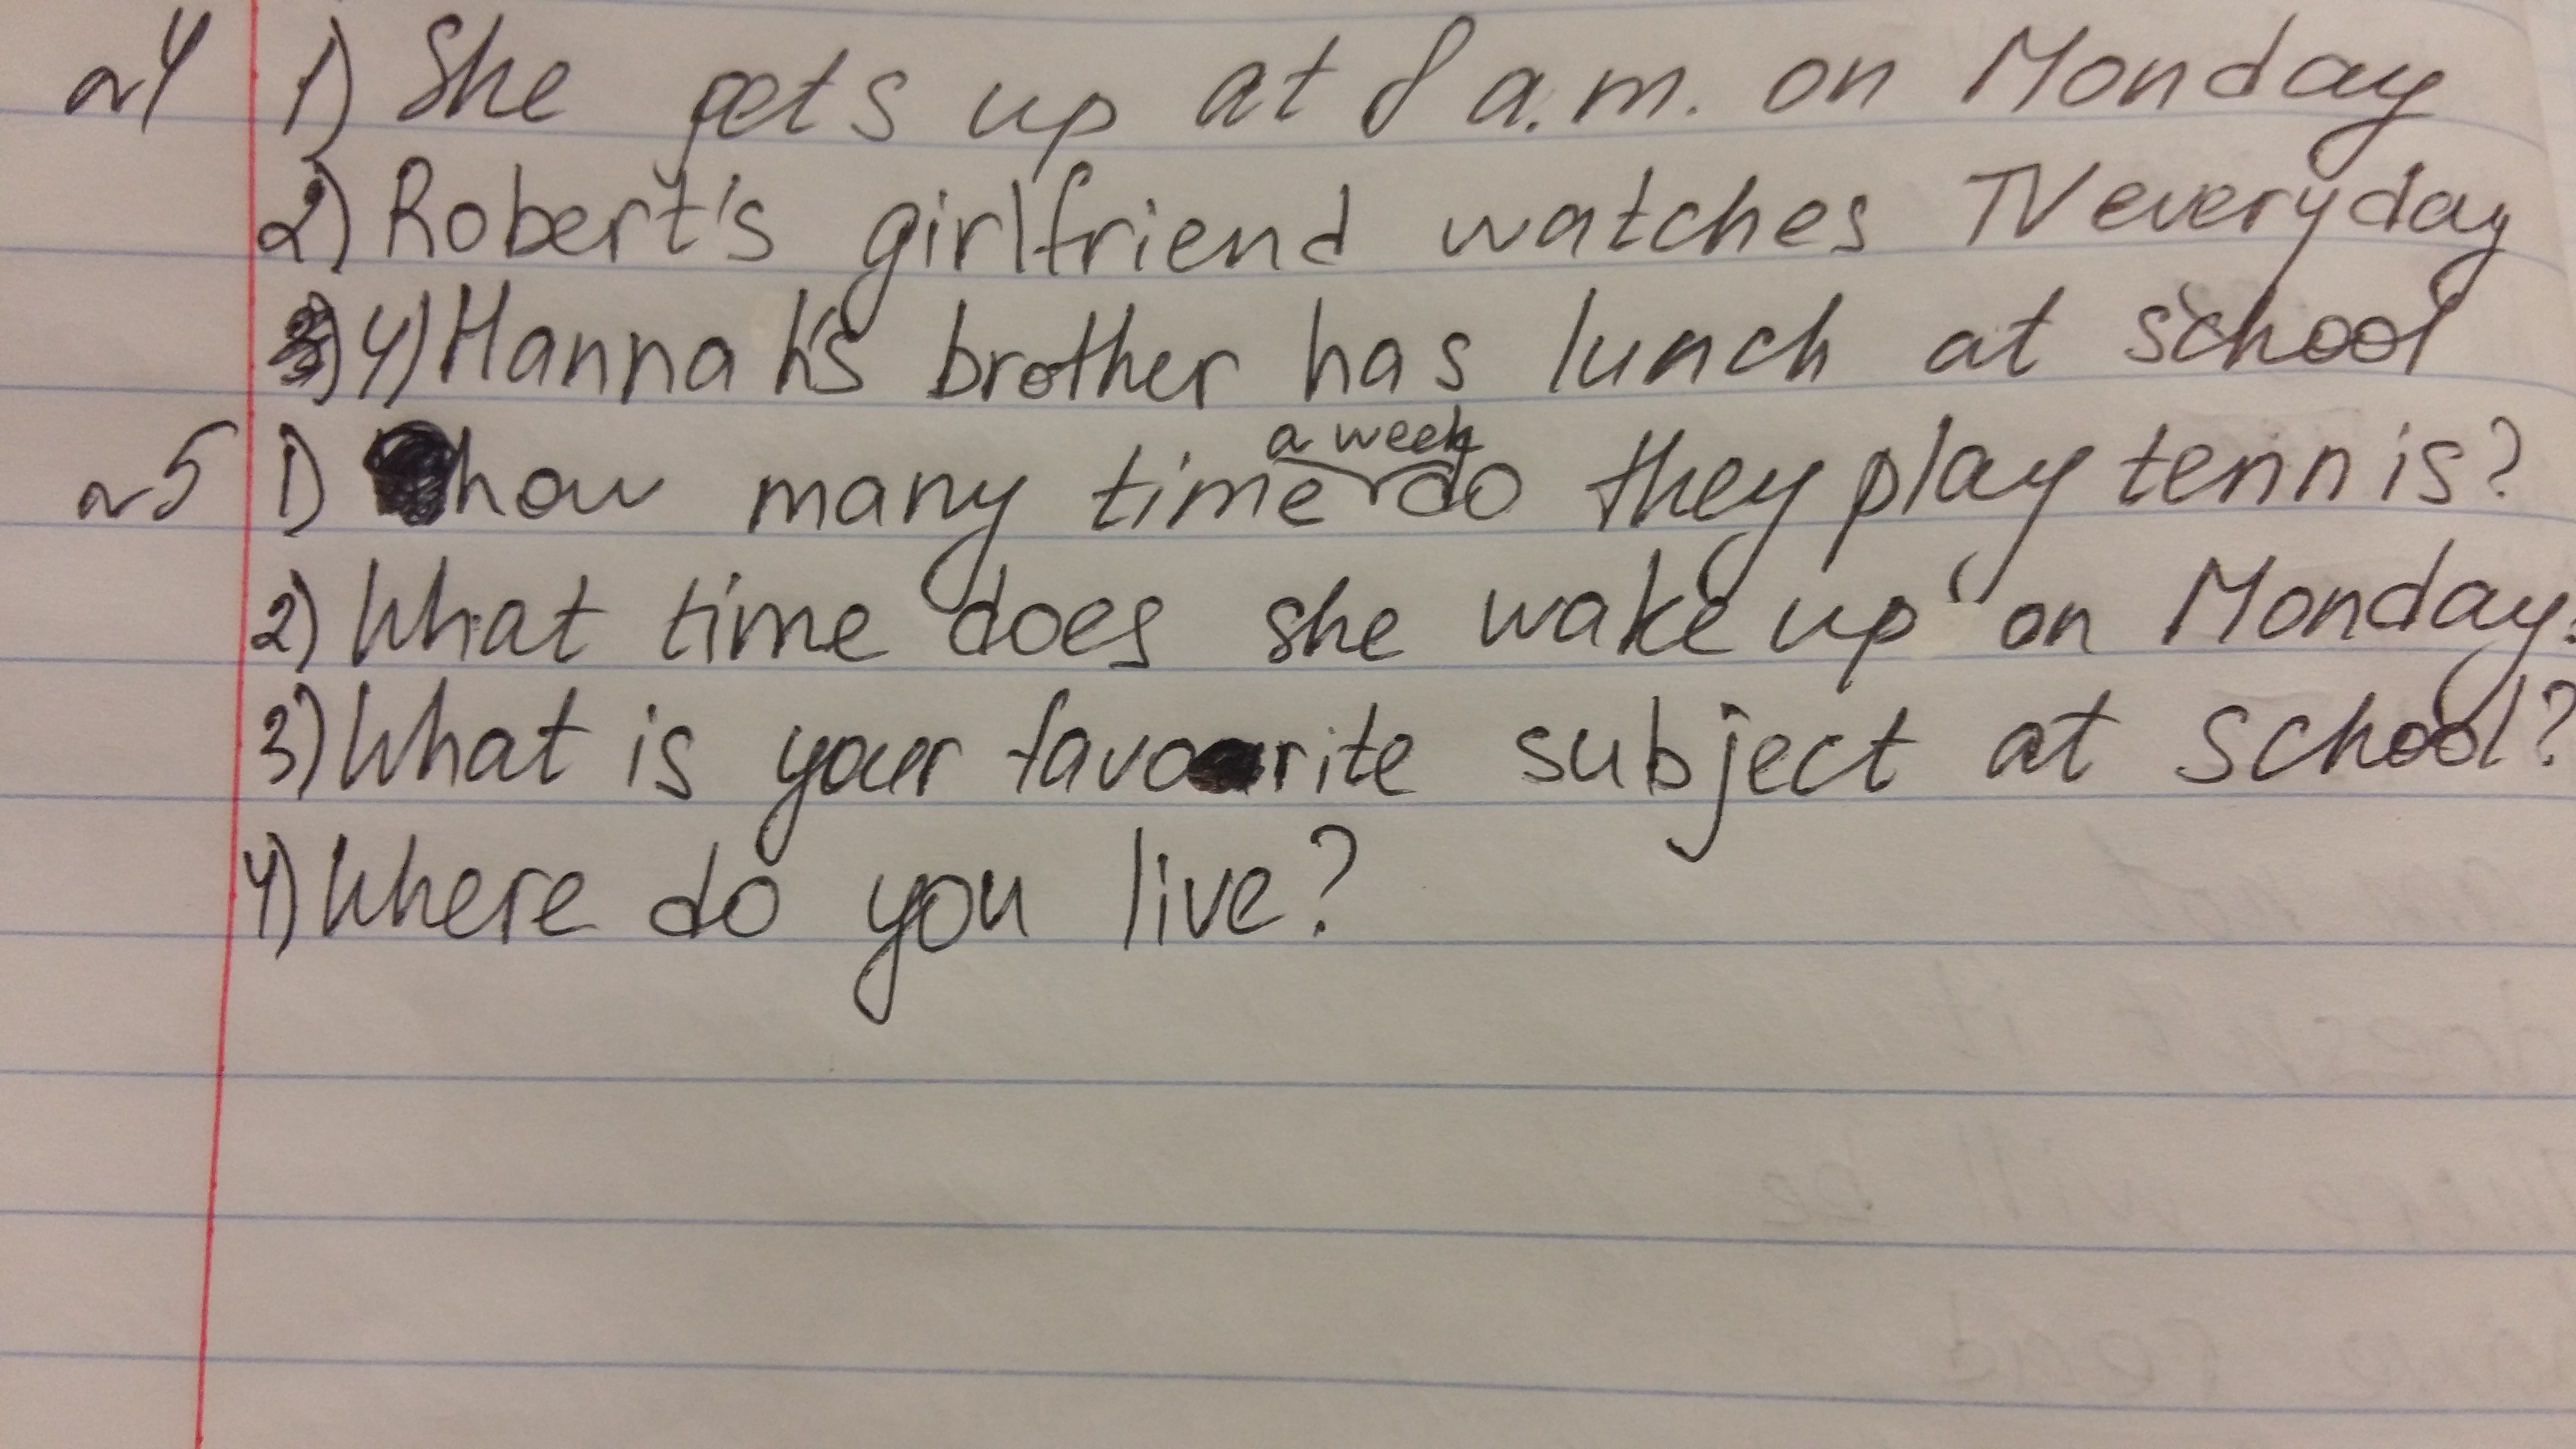 ~4 1) She gets up at 8 a.m. on Monday
2) Robert's girlfriend watches TV everyday
4) Hannah's brother has lunch at school
~5 1) how many time a week do they play tennis?
2) What time does she wake up on Monday?
3) What is your favorite subject at school?
4) Where do you live?